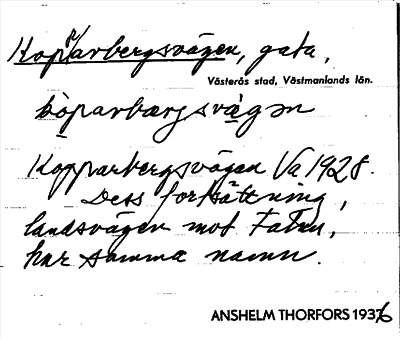 Kopparbergsvägen, gata,
Västerås stad, Västmanlands län.
kòparbærgsvä̀gən
Kopparbergsvägen Va 1928.
Dess fortsättning,
landsvägen mot Falun,
har samma namn.
ANSHELM THORFORS 1936